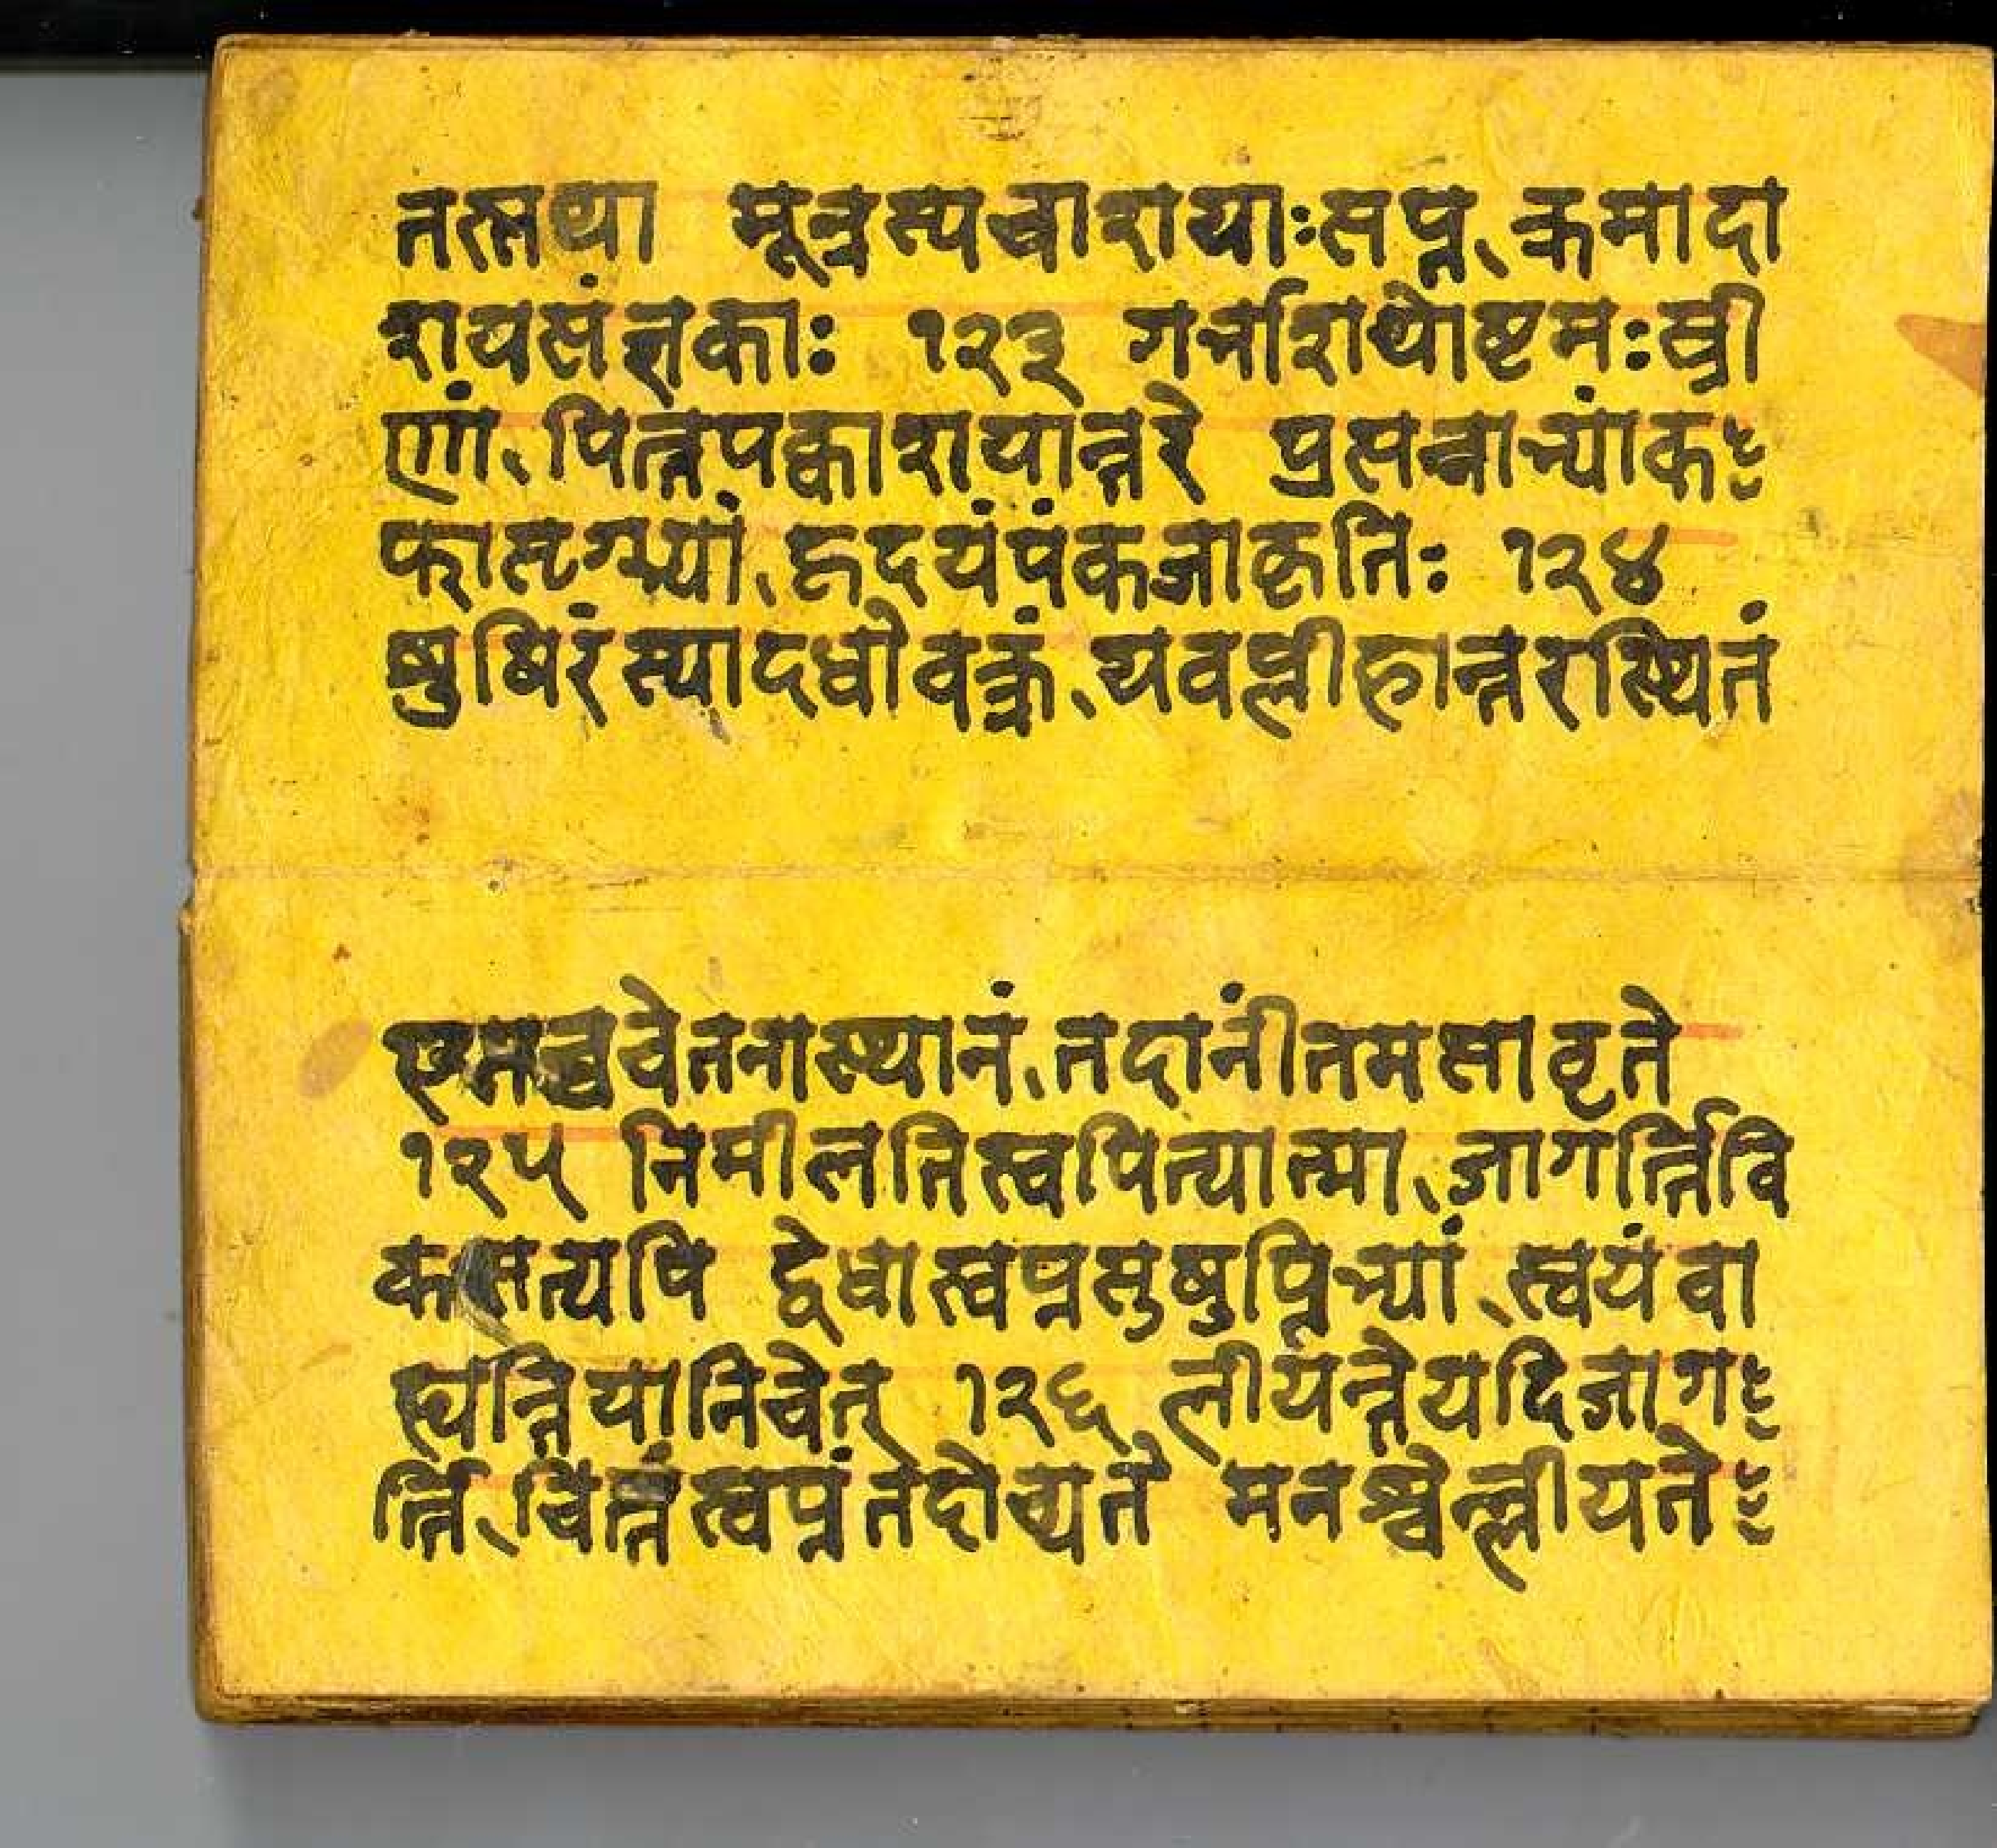 तस्तथा मूत्रस्यचाशयाःसप्त, क्रमादा
शयसंज्ञकाः १२३ गर्भाशयोष्टमःस्त्री
णां, पित्तपक्वाशयान्तरे प्रसन्नाभ्यांकः
फासृग्भ्यां, हृदयंपंकजाकृतिः १२४
षुषिरंस्यादधोवक्त्रं, यवप्लीहान्तरस्थितं
एतच्चचेतनास्थानं, तदानींतमसावृते
१२५ निमीलतिस्वपित्यात्मा, जागर्त्तिवि
कसत्यपि द्वेधास्वप्नसुषुप्तिभ्यां, स्वयंवा
ह्येन्द्रियानिचेत् १२६ लीयन्तेयदिजागः
र्त्ति, चित्तंस्वप्नंतदोच्यते मनश्चेल्लीयतेः